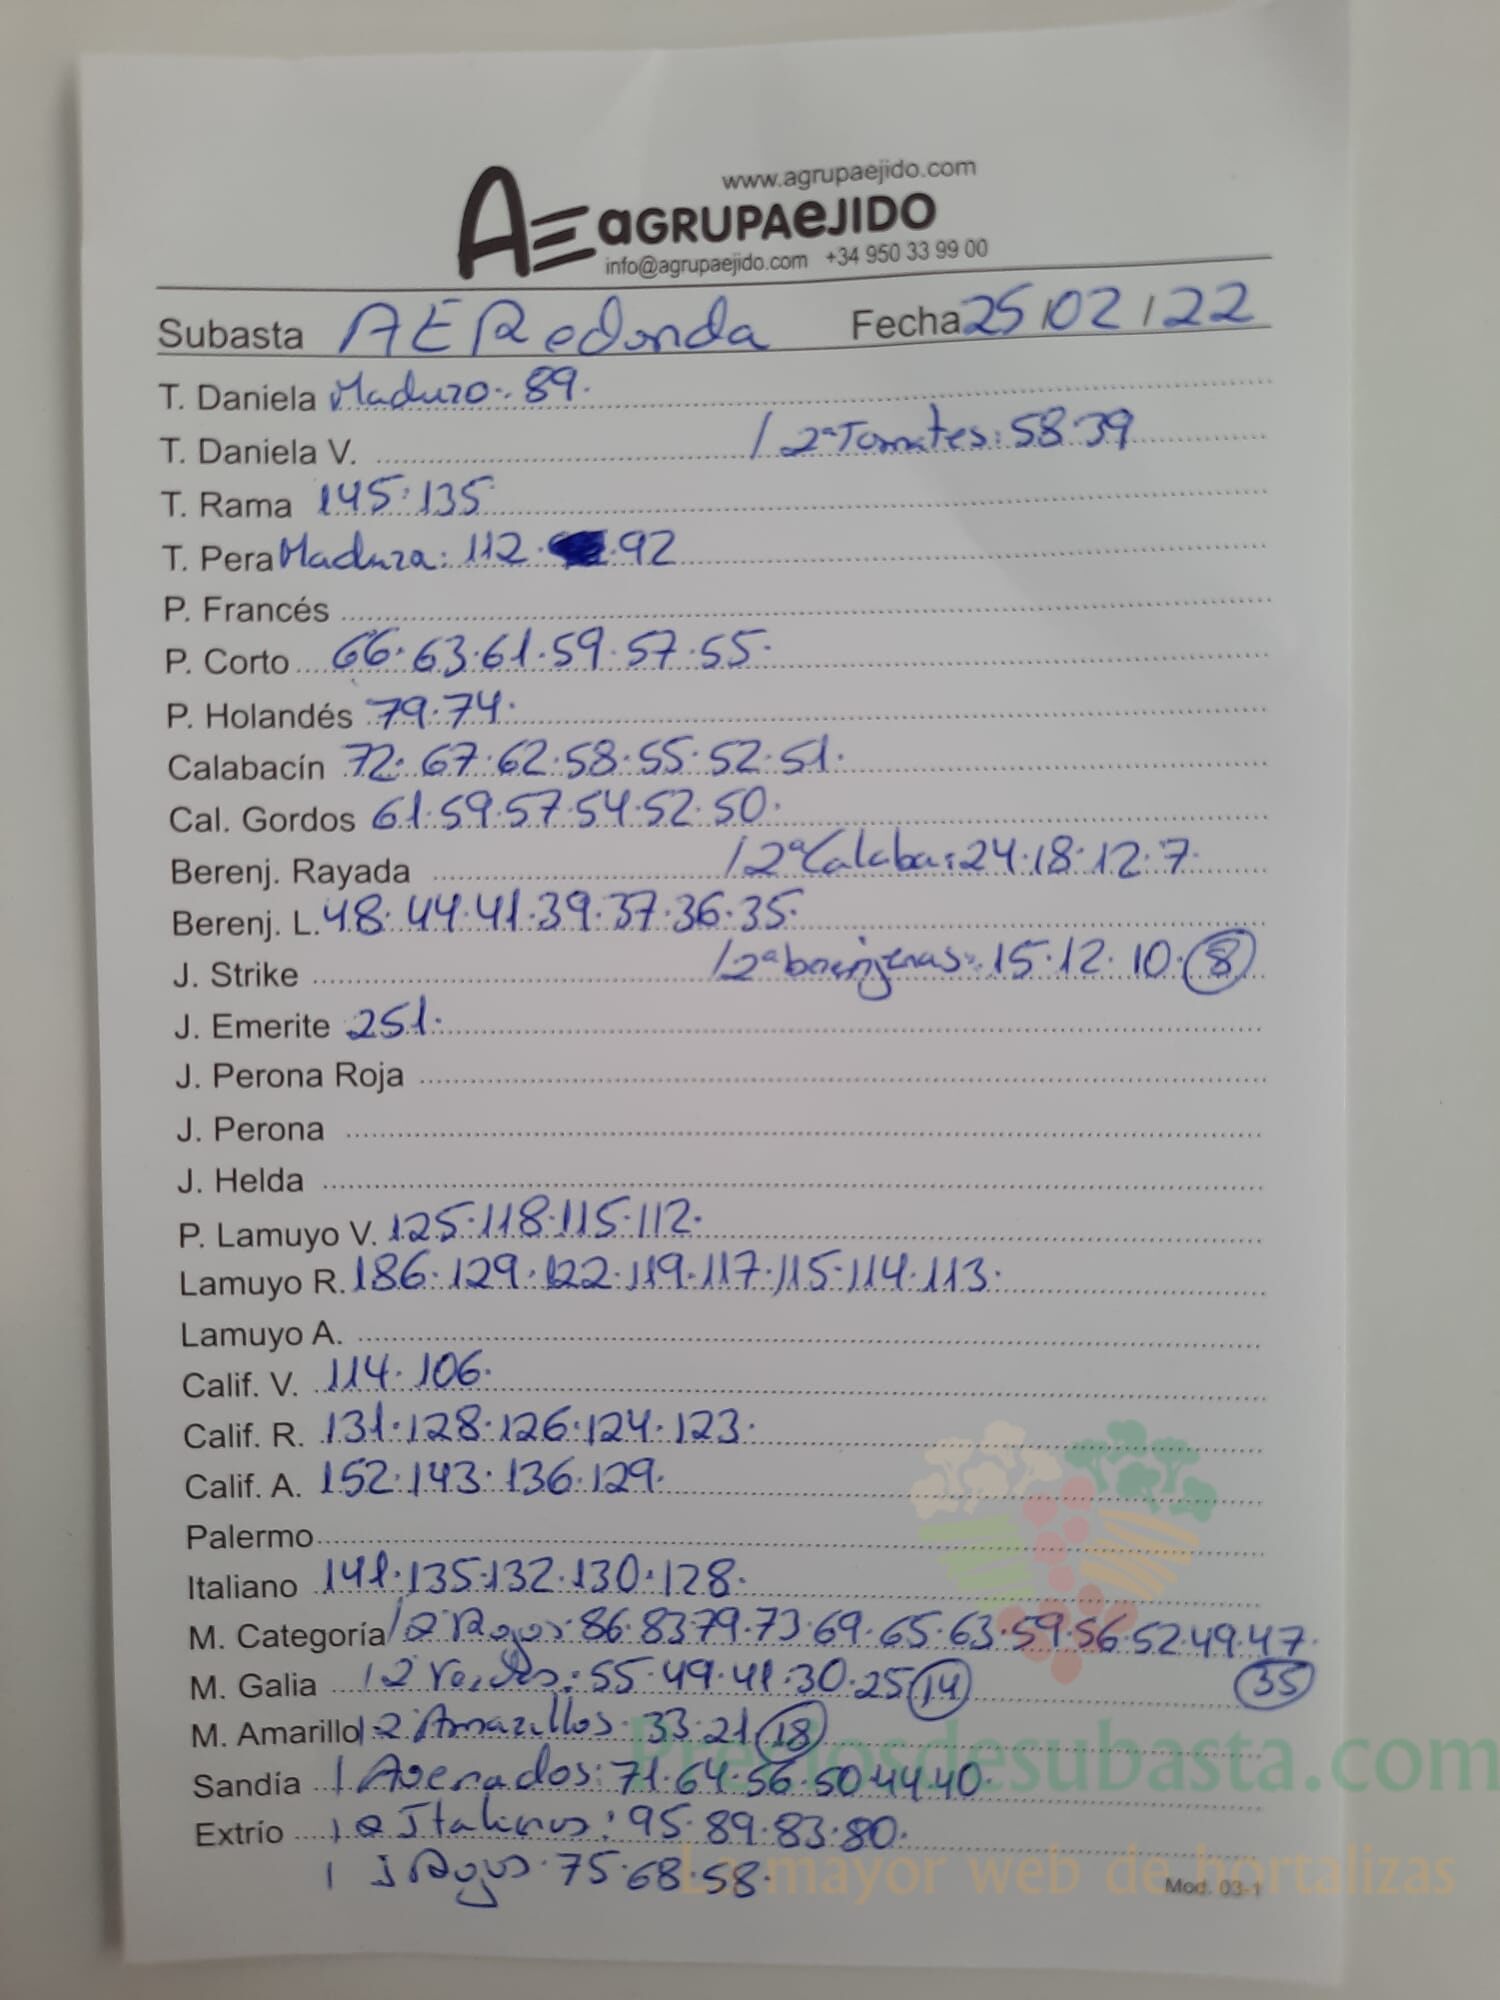 www.agrupaejido.com
AE aGRUPAeJIDO
info@agrupaejido.com +34 950 33 99 00
Subasta AE Redonda Fecha 25/02/22
T. Daniela Maduro: 89.
T. Daniela V. / 2ª Tomates: 58.39
T. Rama 145.135
T. Pera Madura: 112. .92
P. Francés
P. Corto 66.63.61.59.57.55.
P. Holandés 79.74.
Calabacín 72.67.62.58.55.52.51.
Cal. Gordos 61.59.57.54.52.50.
Berenj. Rayada / 2ª Calaba: 24.18.12.7.
Berenj. L. 48.44.41.39.37.36.35.
J. Strike / 2ª berenjenas: 15.12.10.8
J. Emerite 251.
J. Perona Roja
J. Perona
J. Helda
P. Lamuyo V. 125.118.115.112.
Lamuyo R. 186.129.122.119.117.115.114.113.
Lamuyo A.
Calif. V. 114.106.
Calif. R. 131.128.126.124.123.
Calif. A. 152.143.136.129.
Palermo
Italiano 141.135.132.130.128.
M. Categoría / 2 Rojos: 86.83.79.73.69.65.63.59.56.52.49.47.
M. Galia / 2 Verdes: 55.49.41.30.25.14 35
M. Amarillo / 2 Amarillos. 33.21.18
Sandía / Asenados: 71.64.56.50.44.40.
Extrío / 2 Italianos: 95.89.83.80.
/ Rojos. 75.68.58.
Mod. 03-1
Preciosdesubasta.com
La mayor web de hortalizas